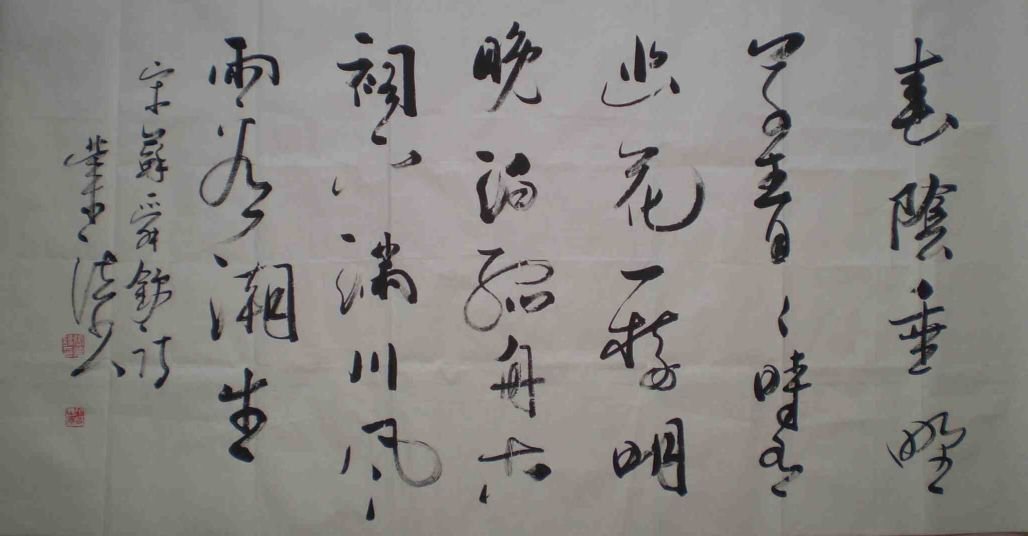 春陰垂野
草青々時有
幽花一樹明
晚泊孤舟古
祠下滿川風
雨看潮生
宋蘇舜欽詩